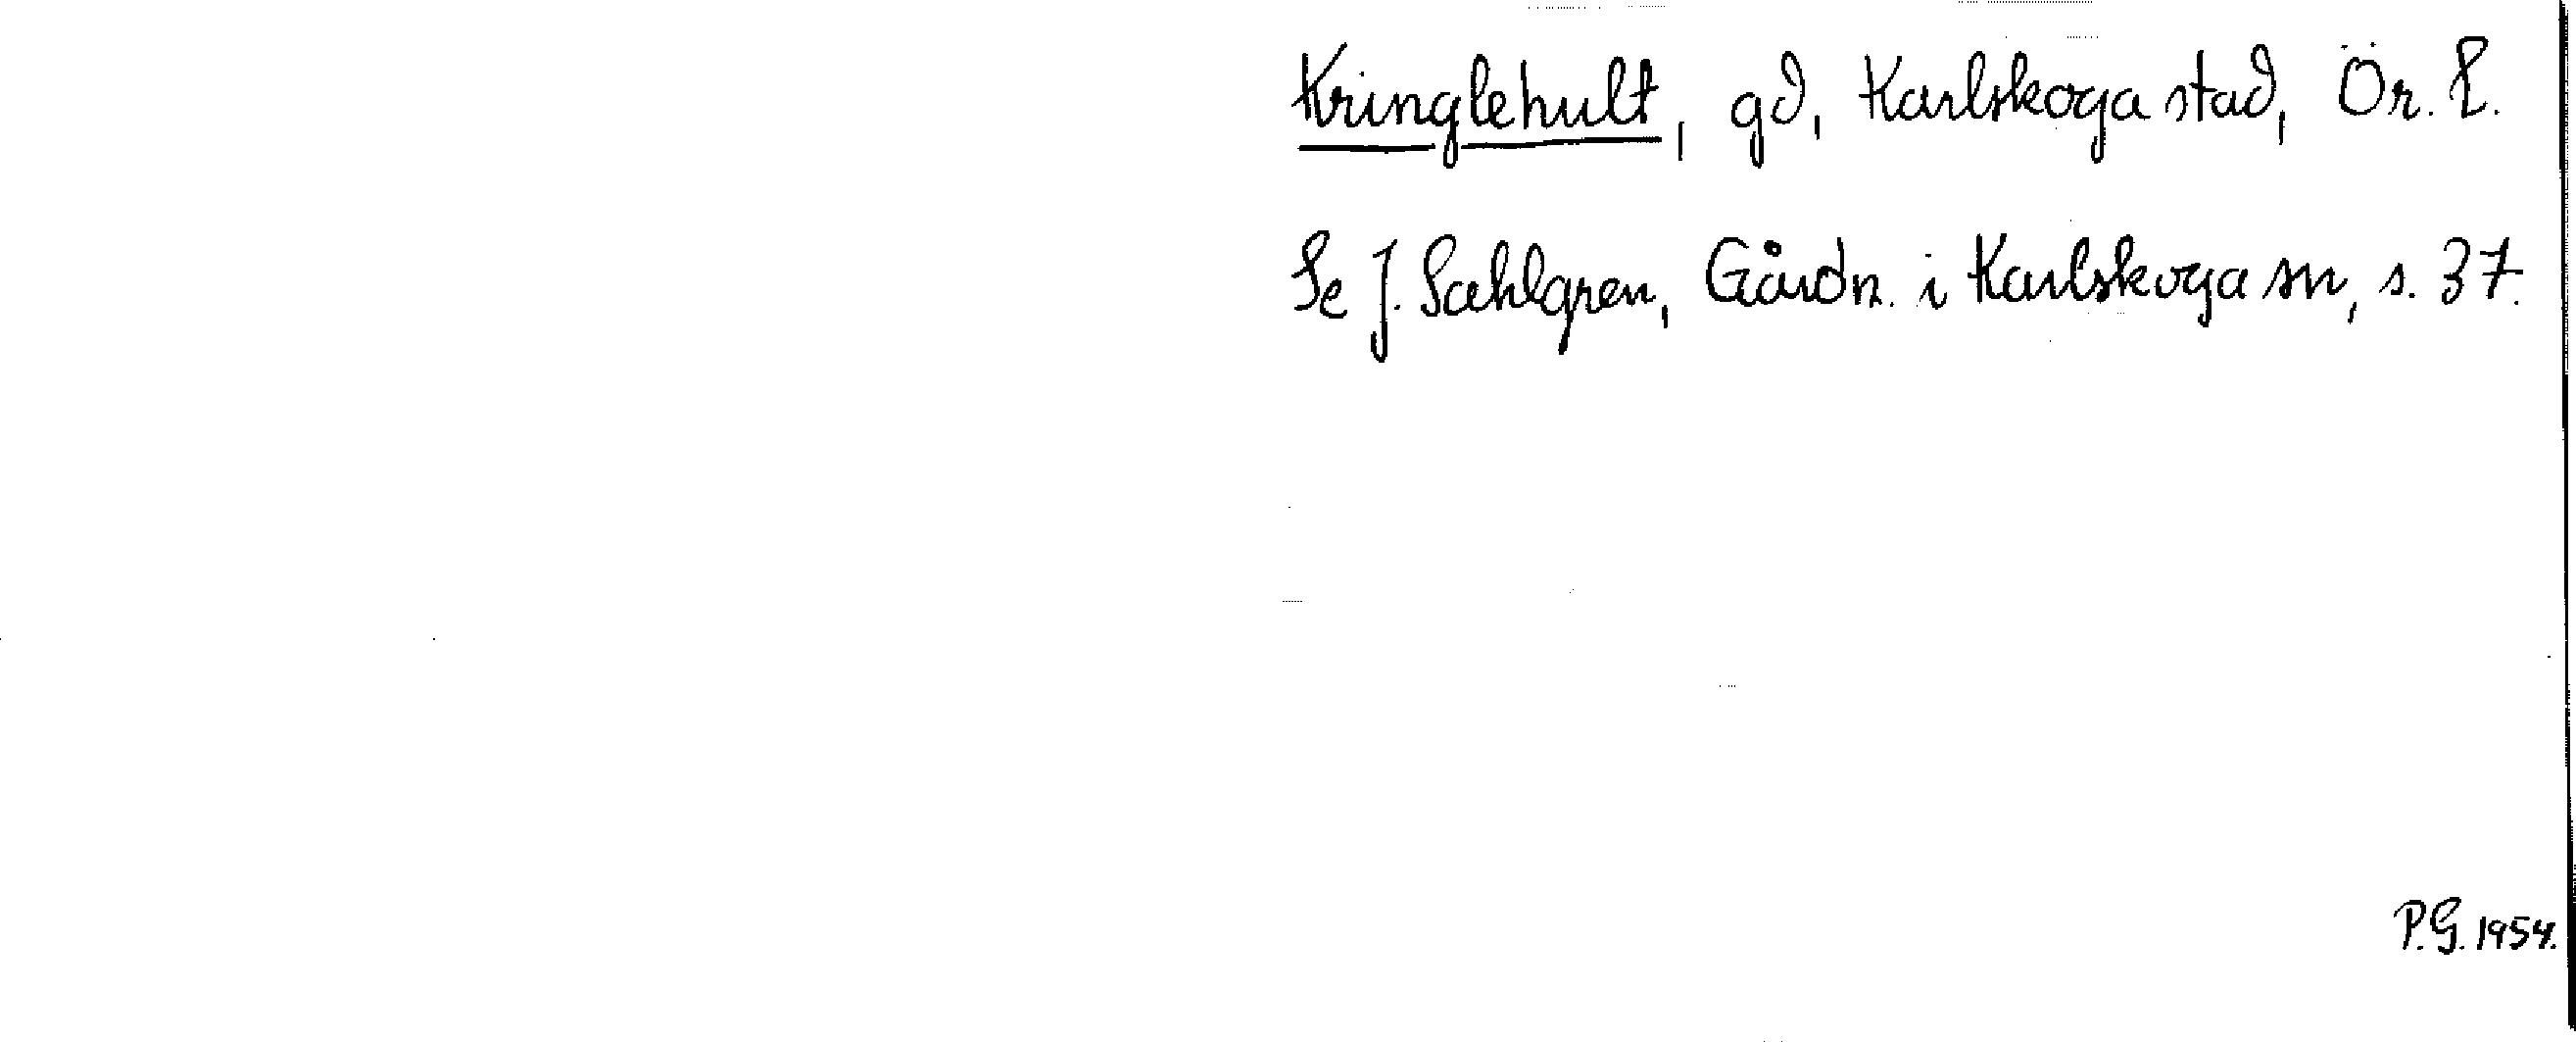 Kringlehult, gd, Karlskoga stad, Ör. L.
Se J. Sahlgren, Gårdn. i Karlskoga sn, s. 37.
P.G. 1954.